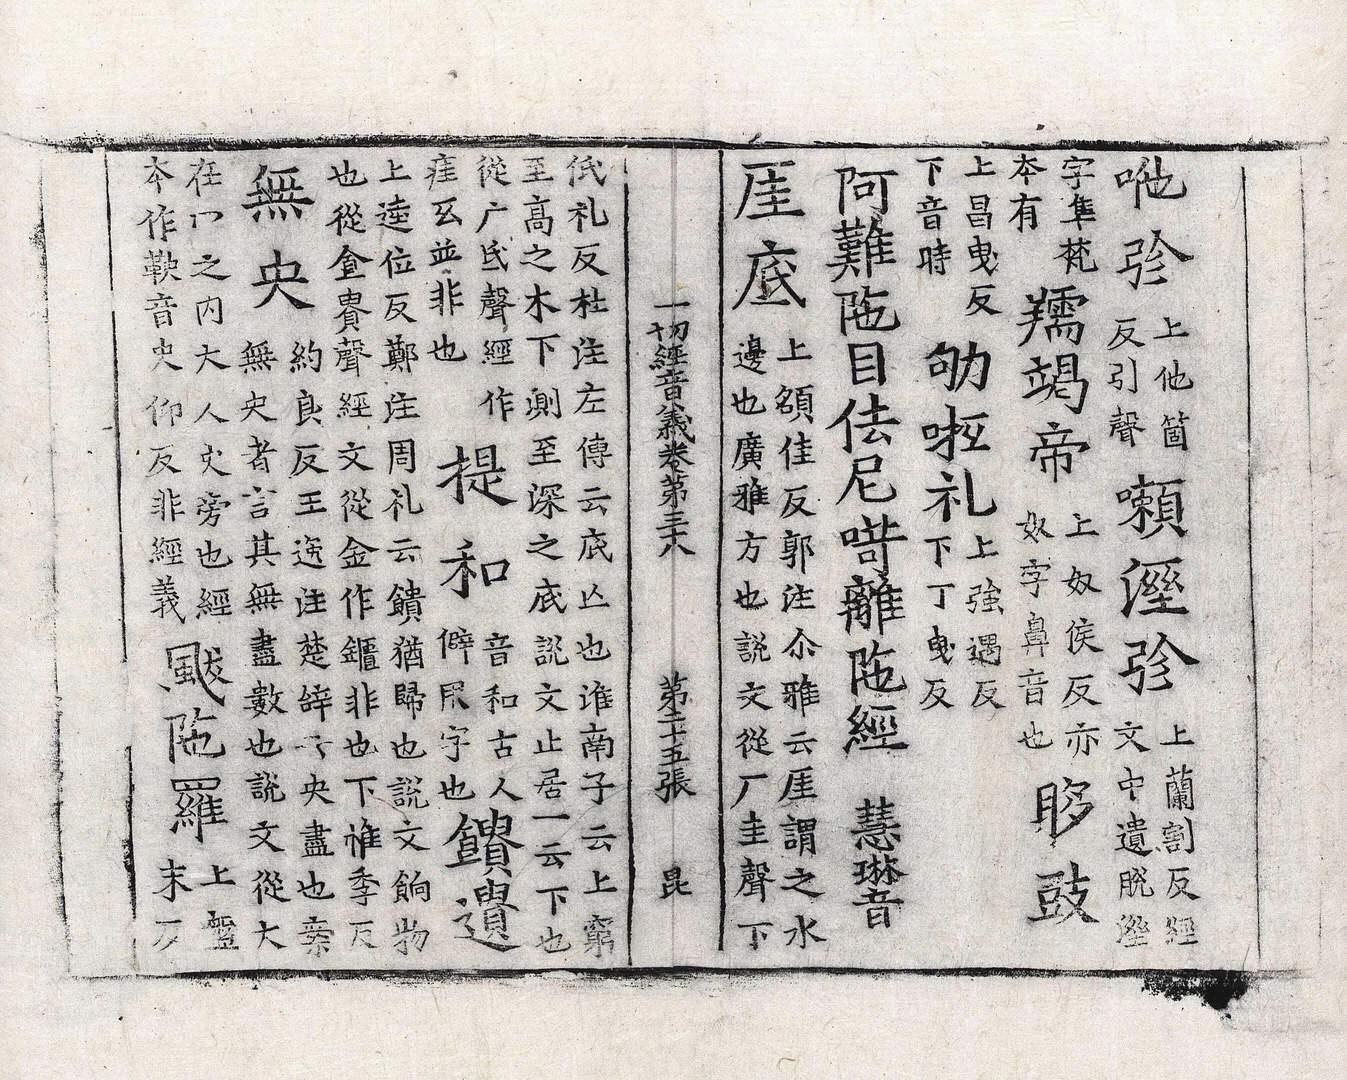 咃𧦬 上他箇反引聲 嬾溼𧦬 上蘭割反經文中遺脫溼
字隼梵本有 羺竭帝 上奴侯反亦奴字鼻音也 眵豉
上昌曳反下音時 㔙𠷐礼 上強遇反下丁曳反
阿難陁目佉尼呵離陁經 慧琳音
厓底 上額佳反郭注尒雅云厓謂之水邊也廣雅方也說文從厂圭聲下
一切經音義卷第三十八 第二十五張 昆
低礼反杜注左傳云底止也淮南子云上窮至高之木下測至深之底說文止居一云下也
從广氐聲經作疷𤵜並非也 提和 音和古人僻用字也 饋遺
上逵位反鄭注周礼云饋猶歸也說文餉物也從食貴聲經文從金作鐀非也下惟季反
無央 約良反王逸注楚辞云央盡也案無央者言其無盡數也說文從大
在冂之内大人央旁也經本作鞅音央仰反非經義 颰陁羅 上盤末反